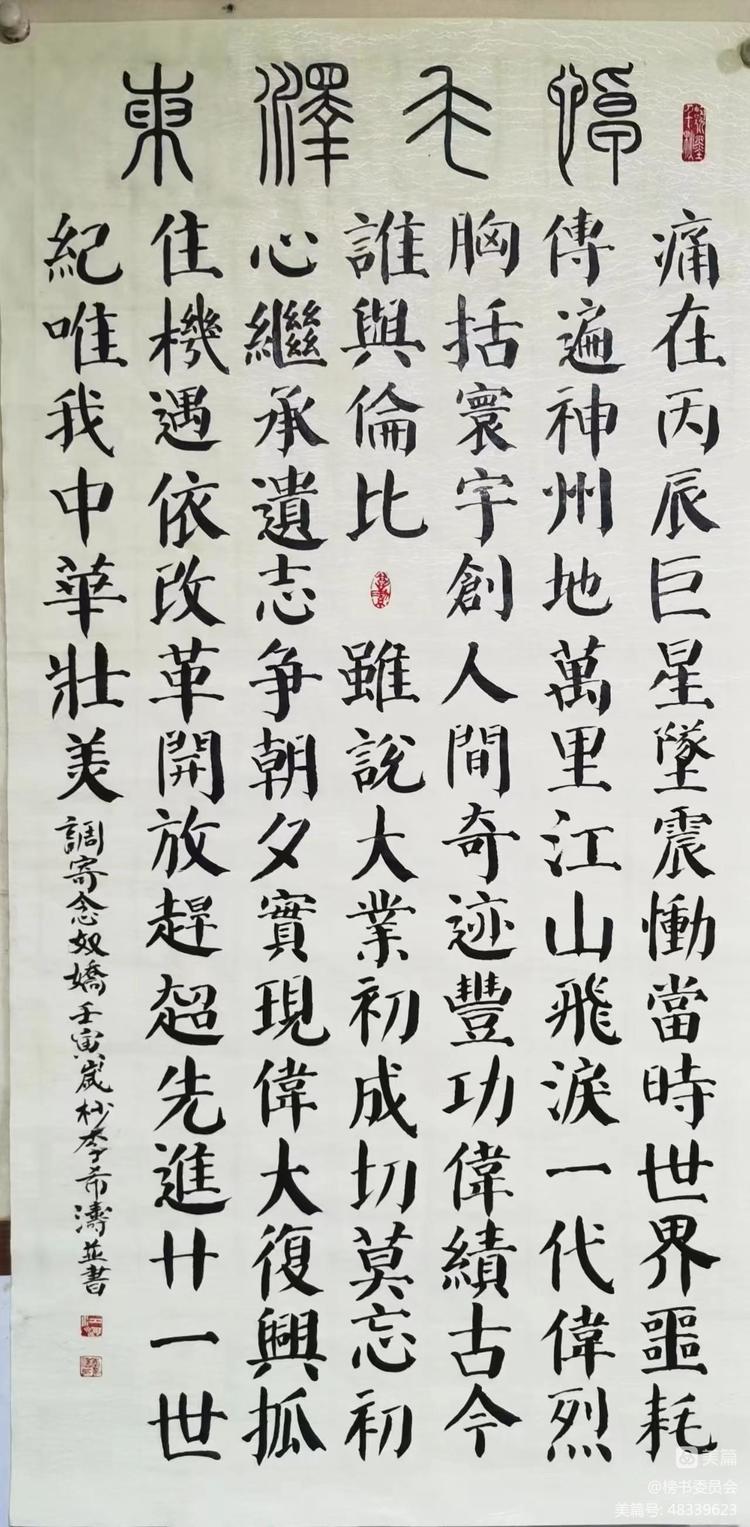 悼毛澤東
痛在丙辰巨星墜震慟當時世界噩耗
傳遍神州地萬里江山飛淚一代偉烈
胸括寰宇創人間奇迹豐功偉績古今
誰與倫比 雖說大業初成切莫忘初
心繼承遺志争朝夕實現偉大復興抓
住機遇依改革開放趕超先進廿一世
紀唯我中華壯美
調寄念奴嬌壬寅歲杪李希濤並書
美篇
@榜书委员会
美篇号: 48339623